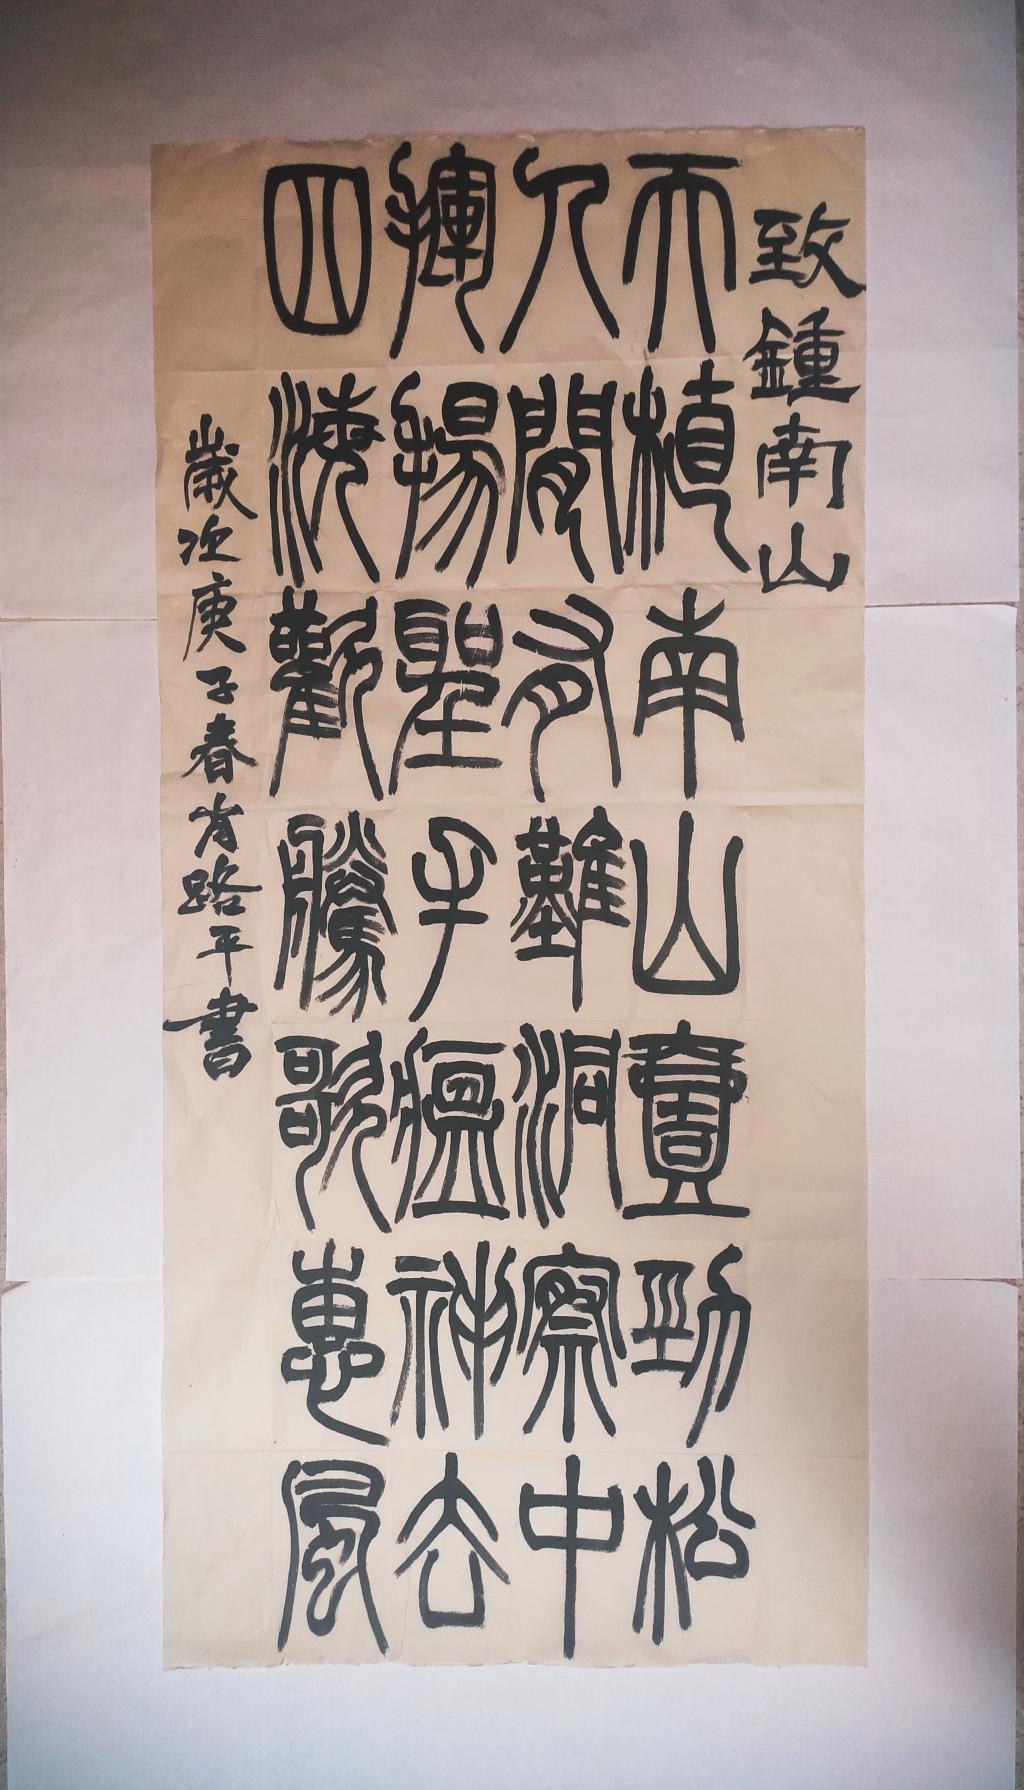 致鍾南山
天植南山壹勁松
人間有難洞察中
揮揚聖手瘟神去
四海歡騰歌惠風
歲次庚子春肖路平書